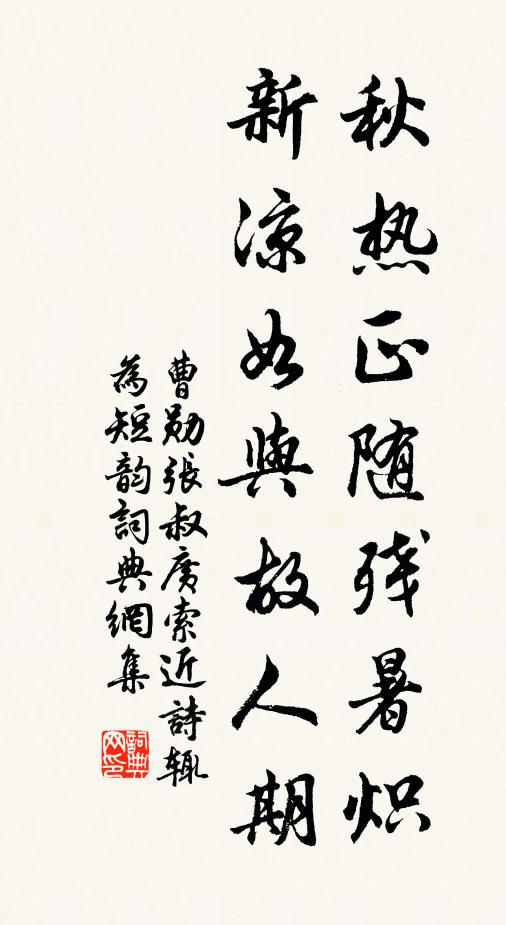 秋热正随残暑炽
新凉如與故人期
曹勋張叔廣索近詩辄
為短韵詞典網集
詞典
网印